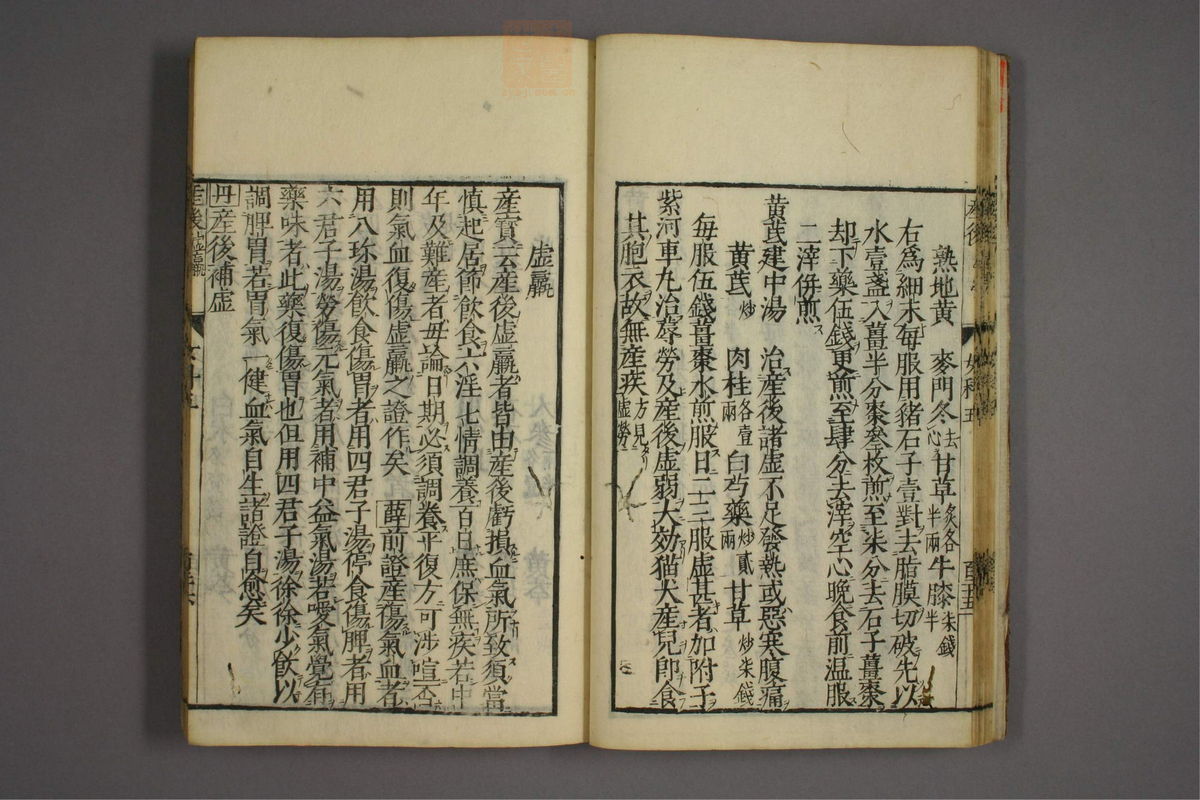 熟地黄 麥門冬去心 甘草炙各半兩 牛膝半
右爲細末每服用豬石子壹對去脂膜切破先以
水壹盞入薑半分棗叁枚煎至柒分去石子薑棗
却下藥伍錢更煎至肆分去滓空心晚食前温服
二滓併煎
黄芪建中湯 治産後諸虚不足發熱或惡寒腹痛
黄芪炒 肉桂各壹兩 白芍藥炒貳兩 甘草炒柒錢
每服伍錢薑棗水煎服日二三服虚甚者加附子
紫河車丸治蓐勞及産後虚弱大効猫犬産兒即食
其胞衣故無産疾方見虚勞
虚羸
産寶云産後虚羸者皆由産後虧損血氣所致須當
慎起居節飲食六淫七情調養百日庶保無疾若中
年及難産者毋論日期必須調養平復方可涉喧否
則氣血復傷虚羸之證作矣 薛前證産傷氣血者
用八珎湯飲食傷胃者用四君子湯停食傷脾者用
六君子湯勞傷元氣者用補中益氣湯若噯氣覺有
藥味者此藥復傷胃也但用四君子湯徐徐少飲以
調脾胃若胃氣一健血氣自生諸證自愈矣
丹産後補虚